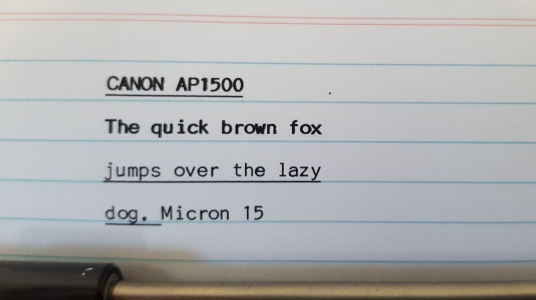 CANON AP1500
The quick brown fox
jumps over the lazy
dog. Micron 15